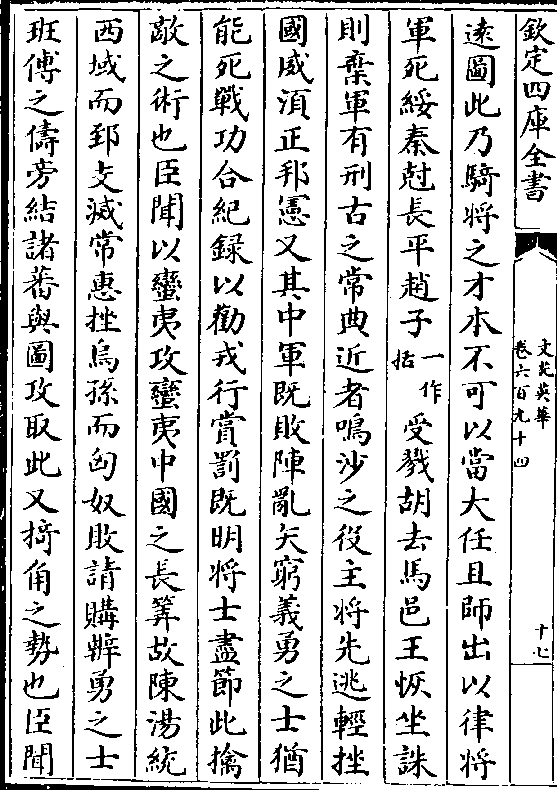 欽定四庫全書
文苑英華
卷六百九十四
十七
遠圖此乃騎將之才本不可以當大任且師出以律將
軍死綏秦尅長平趙子一作括受戮胡去馬邑王恢坐誅
則棄軍有刑古之常典近者鳴沙之役主將先逃輕挫
國威湏正邦憲又其中軍既敗陣亂矢窮義勇之士猶
能死戰功合紀録以勸戎行賞罰既明将士盡節此擒
敵之術也臣聞以蠻夷攻蠻夷中國之長筭故陳湯統
西域而郅支滅常惠挫烏孫而匈奴敗請購辯勇之士
班傅之儔旁結諸蕃與圖攻取此又掎角之勢也臣聞